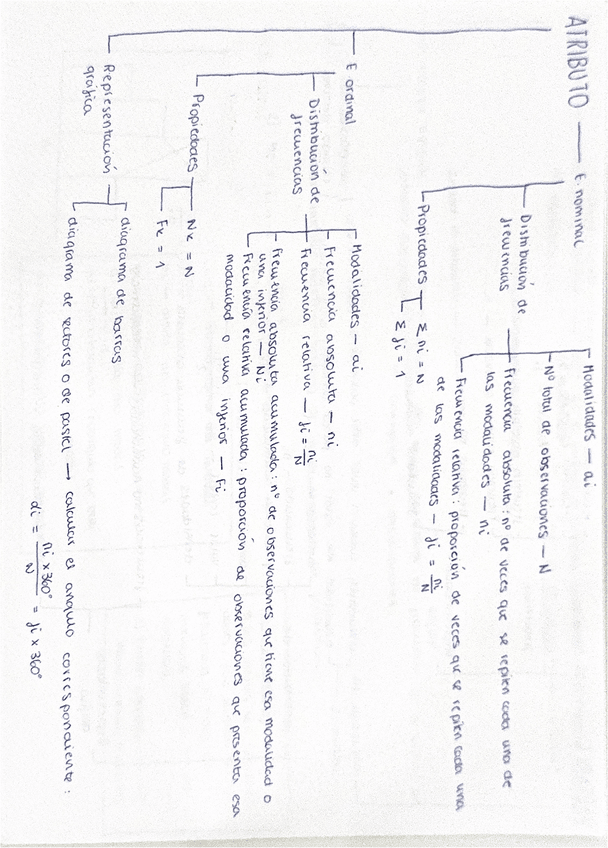 ATRIBUTO — E. nominal
Distribución de
frecuencias
Modalidades — ai
Nº total de observaciones — N
Frecuencia absoluta: nº de veces que se repiten cada una de
las modalidades — ni
Frecuencia relativa: proporción de veces que se repiten cada una
de las modalidades — fi = ni/N
Propiedades
Σ ni = N
Σ fi = 1
E ordinal
Distribución de
frecuencias
Modalidades — ai
Frecuencia absoluta — ni
Frecuencia relativa — fi = ni/N
Frecuencia absoluta acumulada: nº de observaciones que tiene esa modalidad o
una inferior — Ni
Frecuencia relativa acumulada: proporción de observaciones que presenta esa
modalidad o una inferior — Fi
Propiedades
Nk = N
Fk = 1
Representación
gráfica
diagrama de barras
diagrama de sectores o de pastel → calcular el angulo correspondiente:
αi = ni x 360°/N = fi x 360°